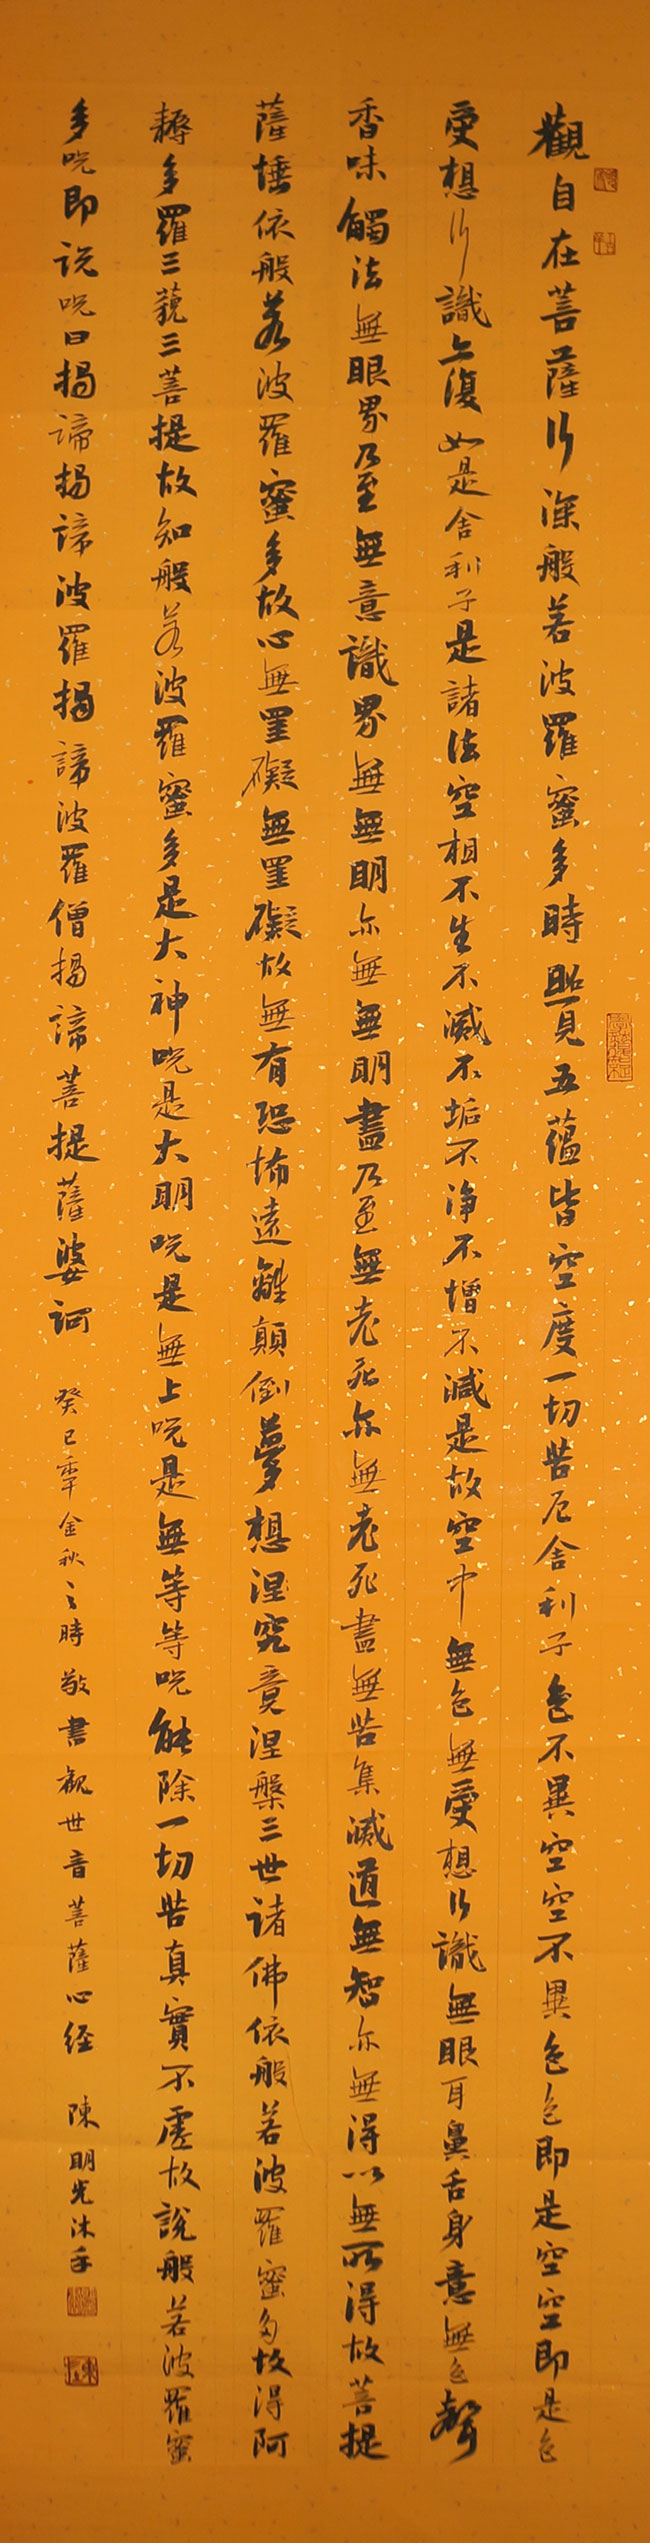 觀自在菩薩行深般若波羅蜜多時照見五蘊皆空度一切苦厄舍利子色不異空空不異色色即是空空即是色
受想行識亦復如是舍利子是諸法空相不生不滅不垢不淨不增不減是故空中無色無受想行識無眼耳鼻舌身意無色聲
香味觸法無眼界乃至無意識界無無明亦無無明盡乃至無老死亦無老死盡無苦集滅道無智亦無得以無所得故菩提
薩埵依般若波羅蜜多故心無罣礙無罣礙故無有恐怖遠離顛倒夢想涅究竟涅槃三世諸佛依般若波羅蜜多故得阿
耨多羅三藐三菩提故知般若波羅蜜多是大神呪是大明呪是無上呪是無等等呪能除一切苦真實不虛故說般若波羅蜜
多呪即說呪曰揭諦揭諦波羅揭諦波羅僧揭諦菩提薩婆訶 癸巳年金秋之時敬書觀世音菩薩心経 陳明光沐手